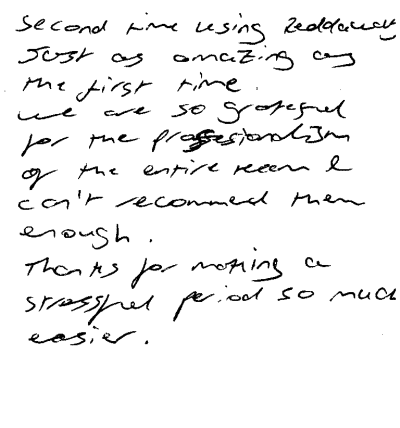 Second time using Reddaway
Just as amazing as
the first time.
we are so grateful
for the professionalism
of the entire team &
can't recommend them
enough.
Thanks for making a
stressful period so much
easier.